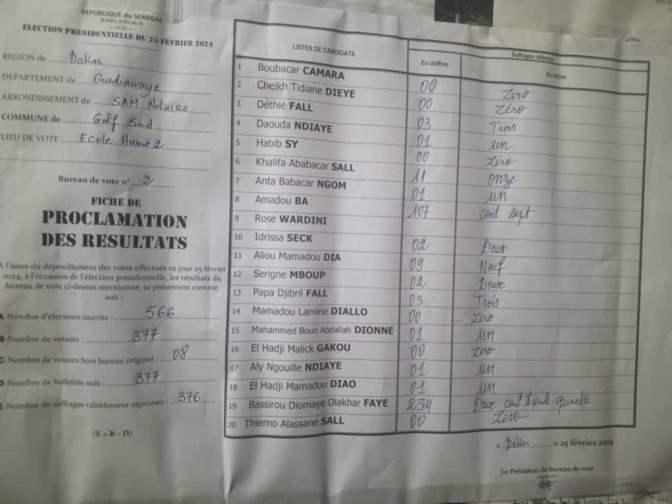 REPUBLIQUE du SENEGAL
ELECTION PRESIDENTIELLE DU 25 FEVRIER 2024
REGION de Dakar
DEPARTEMENT de Guediawaye
ARRONDISSEMENT de SAM Notaire
COMMUNE de Golf Sud
LIEU DE VOTE Ecole Hamo 2
Bureau de vote n° 2
FICHE DE
PROCLAMATION
DES RESULTATS
A l'issue du dépouillement des votes effectués ce jour 25 février
2024, à l'occasion de l'élection présidentielle, les résultats du
bureau de vote ci-dessus mentionné, se présentent comme
suit :
A-Nombre d'électeurs inscrits : 566
B-Nombre de votants : 377
C-Nombre de votants hors bureau originel : 08
D-Nombre de bulletins nuls : 377
E-Nombre de suffrages valablement exprimés : 376
(E = B – D)
LISTES DE CANDIDATS
Suffrages obtenus
En chiffres En lettres
1 Boubacar CAMARA 00 Zero
2 Cheikh Tidiane DIEYE 00 Zéro
3 Déthié FALL 03 Trois
4 Daouda NDIAYE 01 un
5 Habib SY 00 Zéro
6 Khalifa Ababacar SALL 11 onze
7 Anta Babacar NGOM 01 un
8 Amadou BA 107 cent sept
9 Rose WARDINI
10 Idrissa SECK 02 Deux
11 Aliou Mamadou DIA 09 Neuf
12 Serigne MBOUP 02 Deux
13 Papa Djibril FALL 03 Trois
14 Mamadou Lamine DIALLO 00 Zero
15 Mahammed Boun Abdallah DIONNE 01 un
16 El Hadji Malick GAKOU 00 zero
17 Aly Ngouille NDIAYE 01 un
18 El Hadji Mamadou DIAO 01 un
19 Bassirou Diomaye Diakhar FAYE 234 Deux cent trente quatre
20 Thierno Alassane SALL 00 Zero
A Dakar le 25 février 2024
Le Président du bureau de vote